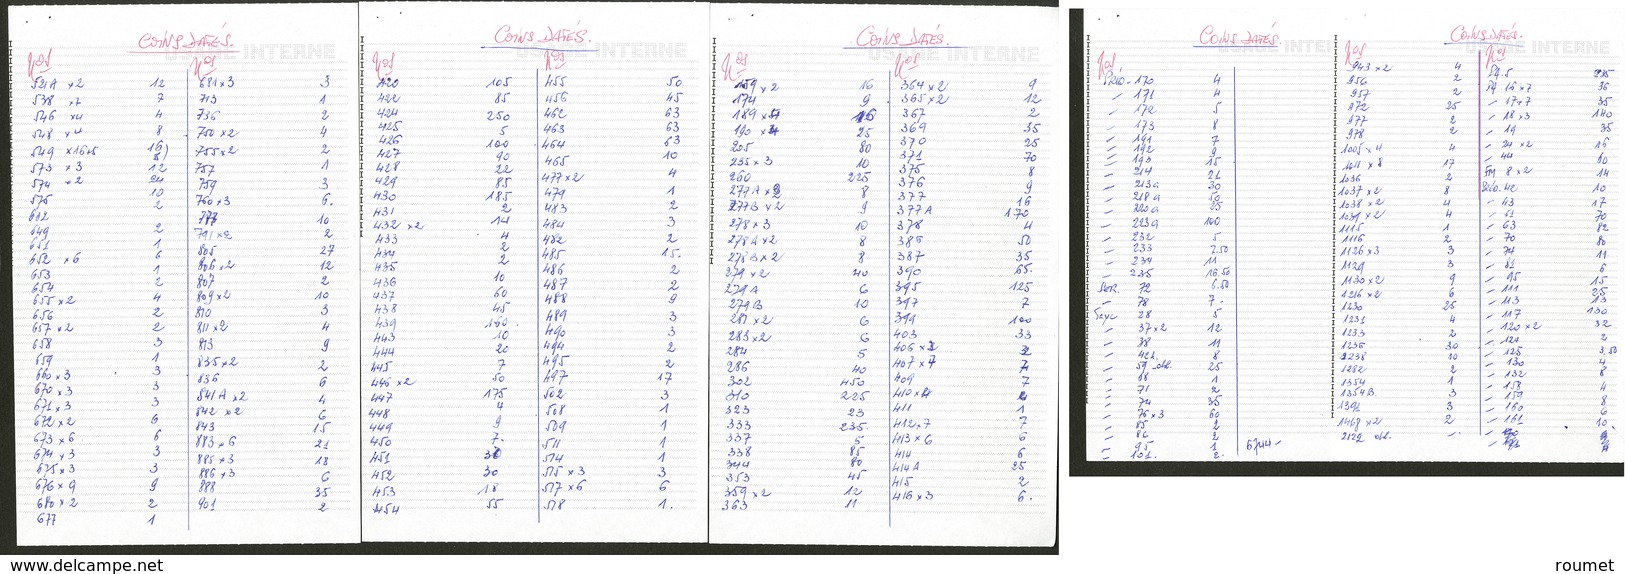 COINS DATÉS.
USAGE INTERNE
Nos
Nos
521A x2 12
538 x7 7
546 x4 4
548 x4 8
549 x16+5 16)
573 x3 12
574 x2
575
612
649 2
651 1
652 x6 6
653 1
654 2
655 x2 4
656 2
657 x2 2
658 3
659 1
660 x3 3
670 x3 3
671 x3 3
672 x2 6
673 x6 6
674 x3 3
675 x3 3
676 x9 9
680 x2 2
677 1
681 x3 3
713 1
736 2
750 x2 4
755 x2 2
757 1
759 3
760 x3 6.
791 x2 2
805 27
806 x2 12
807 2
809 x2 10
810 3
811 x2 4
813 9
835 x2 2
836 6
841A x2 4
842 x2 6
843 15
883 x6 21
885 x3 18
886 x3 6
888 35
901 2
COINS DATÉS.
USAGE INTERNE
Nos
Nos
420 105
422 85
424 250
425 5
426 100
427 90
428 22
429 85
430 185
431 2
432 x2 14
433 4
434 2
435 2
436 10
437 60
438 45
439 160.
443 10
444 20
445 7
446 x2 50
447 175
448 4
449 9
450 7.
451
452 30
453 18
454 55
455 50
456 45
462 63
463 63
464 63
465 10
477 x2 4
479 1
483 2
484 3
482 2
485 15.
486 2
487 2
488 9
489 3
490 3
494 2
495 2
497 17
502 3
508 1
509 1
511 1
514 1
515 x3 3
517 x6 6
518 1.
COINS DATÉS.
USAGE INTERNE
Nos
Nos
159 x2 16
174 9
189
190 25
205 80
235 x3 10
260 225
277A 8
277B x2 9
278 x3 10
278A x2 8
278B x2 8
279 x2 40
279A 6
279B 10
281 x2 6
283 x2 6
284 5
286 40
302 450
310 225
323 23
333 235.
337 5
338 85
344 80
353 45
359 x2 12
363 11
364 x2 9
365 x2 12
367 2
369 35
370 25
371 70
375 8
376 9
377 16
377A 170
378 4
386 50
387 35
390 65.
395 125
397 7
399 100
403 33
406
407 x7
409 7
410
411 1
412 x7 7
413 x6 6
414 6
414A 25
415 2
416 x3 6.
COINS DATÉS.
USAGE INTERNE
Nos
PRÉO.- 170 4
- 171 4
- 172 5
- 173 8
- 191 7
- 192 9
- 193 15
- 214 21
- 213a 30
- 218a 50
- 220a 25
- 223a 100
- 232 5
- 233 2.50
- 234 11
- 235 16.50
SER. 72 6.50
- 78 7.
Taxe 28 5
- 37 x2 12
- 38 11
- 42A. 8
- 59 obl. 25
- 68 1
- 71 2
- 74 35
- 76 x3 60
- 85 2
- 86 2
- 95 1
- 101. 2.
6744-
COINS DATÉS.
USAGE INTERNE
Nos
Nos
943 x2 4
956 2
957 2
972 25
977 2
978 2
1005 x4 4
1015 x8 17
1036 2
1037 x2 8
1038 x2 4
1039 x2 4
1115 1
1116 2
1126 x3 3
1129 3
1130 x2 9
1216 x2 6
1230 25
1231 4
1233 2
1236 30
1238 10
1282 2
1354 1
1354B 3
1391 3
1468 x2 2
2122 obl. -
PA.5
PA 16 x7 36
- 17+7 35
- 18 x3 140
- 19 35
- 24 x2 16
- 44 10
FM 8 x2 14
PRÉO. 42 10
- 43 17
- 61 70
- 63 82
- 70 80
- 74 11
- 81 6
- 95 15
- 111 25
- 113 13
- 117 130
- 120 x2 32
- 124 2
- 125 3.50
- 130 4
- 132 8
- 158 4
- 159 8
- 160 6
- 161 10.
www.delcampe.net
roumet